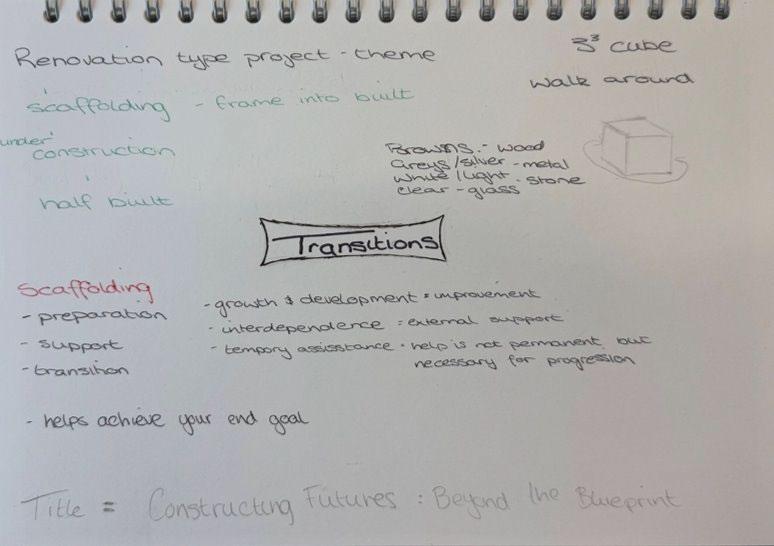 Renovation type project - theme
3³ cube
walk around
scaffolding - frame into built
under
construction
half built
Browns - wood
Greys/silver - metal
White/light - stone
clear - glass
Transitions
Scaffolding
- preparation
- support
- transition
- growth & development = improvement
- interdependence = external support
- tempory assisstance - help is not permanent but
necessary for progression
- helps achieve your end goal
Title = Constructing Futures : Beyond the Blueprint